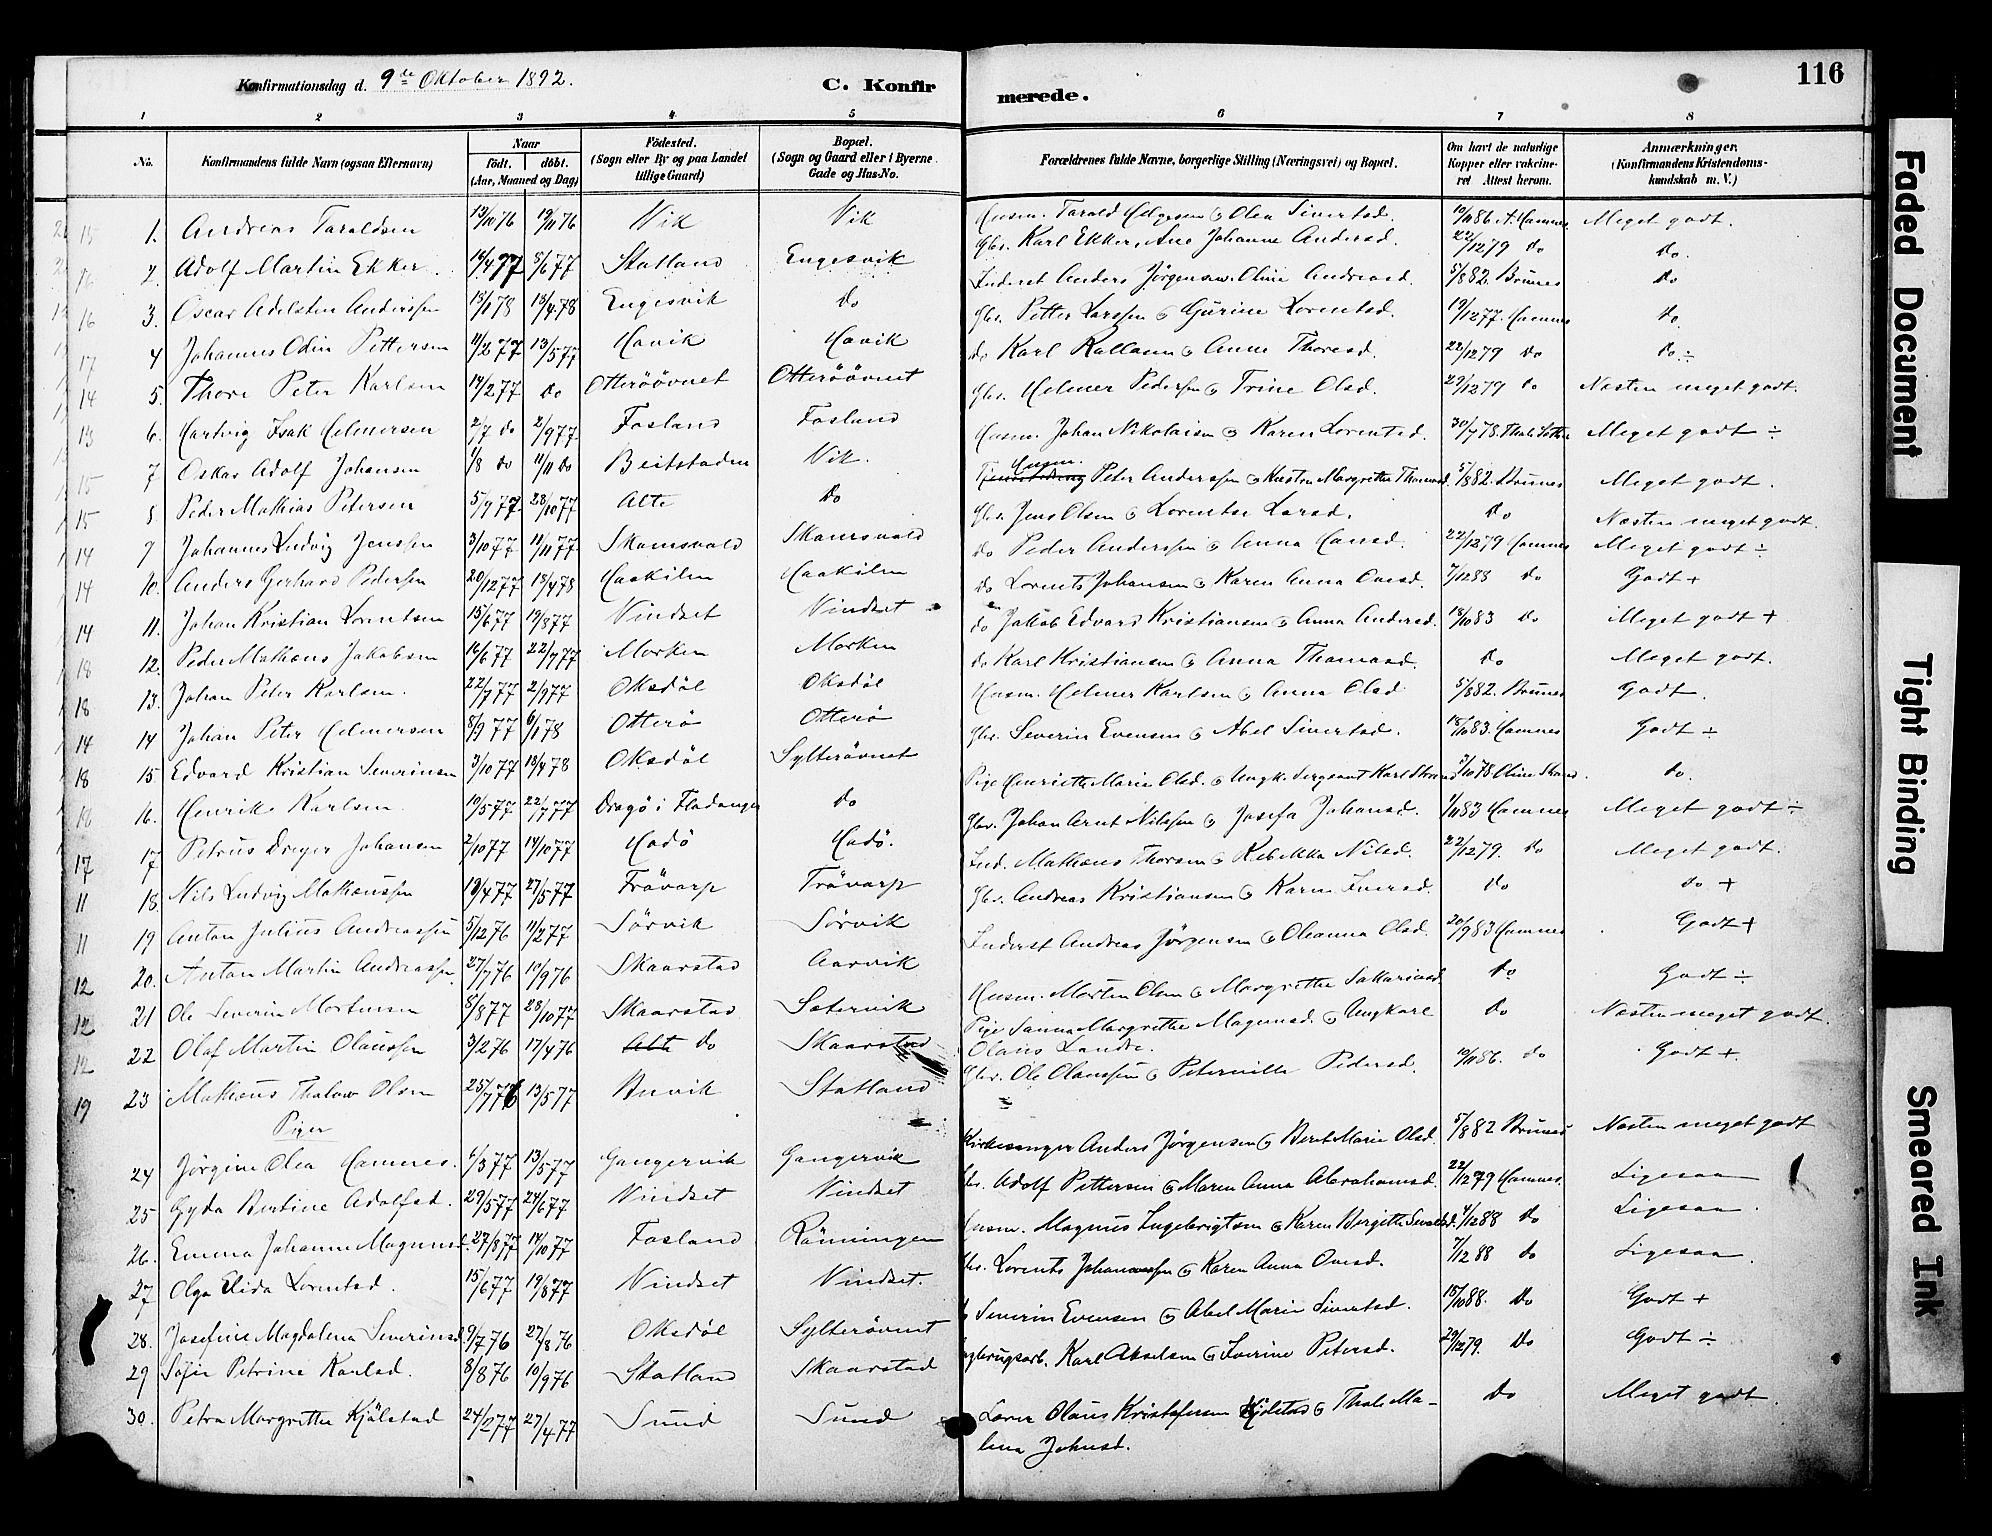 Konfirmationsdag d. 9de Oktober 1892.
C. Konfirmerede.
116
1 2 3 4 5 6 7 8
No. Konfirmandens fulde Navn (ogsaa Efternavn) Naar født, døbt. (Aar, Maaned og Dag) Fødested. (Sogn eller By og paa Landet tillige Gaard) Bopæl. (Sogn og Gaard eller i Byerne Gade og Hus-No. Forældrenes fulde Navne, borgerlige Stilling (Næringsvei) og Bopæl. Om havt de naturlige Kopper eller vakcineret Attest herom. Anmærkninger. (Konfirmandens Kristendomskundskab m. V.)
15 1. Andreas Taraldsen 19/11 76 Vik Vik Husm. Tarald Helgesen & Olea Sivertsd. Meget godt.
2 Adolf Martin Ekker 5/6 77 Statland Engesvik Gbr. Karl Ekker, Ane Johanne Andersd. 22/12 79 do do.
16 3. Oscar Adelsten Anderssen Engesvik do Inderst Anders Jörgensen Oline Andreasd. 5/8 82. Brunes do
17 4 Johannes Odin Pettersen 11/2 77 13/5 77 Havik Havik Gbr. Petter Larssen & Gurine Lorentsd. 19/12 77. Hamnes do.
14 5. Thore Peter Karlsen 14/2 77 do Otteröövnet Otteröövnet do Karl Rallasen & Anne Thoresd. 22/12 79 do do ÷
13 6. Hartvig Isak Helmersen 2/7 do 2/9 77 Fosland Fosland Gbr. Helmer Pedersen & Trine Olsd. 29/12 79 do Næsten meget godt.
15 7 Oskar Adolf Johansen 1/8 do 11/11 do Beitstaden Vik. Husm. Johan Nikolaisen & Karen Lorentsd. 30/7 78. Meget godt ÷
15 8 Peder Mathias Petersen 5/9 77 28/10 77 Alte do Husm. Peter Anderssen & Kirsten Margrethe Thomasd. 5/8 82. Brunes Meget godt.
14 9 Johannes Ludvig Jenssen 3/10 77 11/11 77 Skamsvold Skamsvold Gbr. Jens Olsen & Lorentse Larsd. do Næsten meget godt.
14 10. Anders Gerhard Pedersen 20/12 77 18/4 78 Haakilen Haakilen do Peder Anderssen & Anna Hansd. 22/12 79 Hamnes Meget godt ÷
14 11. Johan Kristian Lorentsen 15/6 77 19/8 77 Vindset Vindset do Lorents Johansen & Karen Anna Ovesd. 7/12 88 do Godt +
18 12. Peder Mathæus Jakobsen 16/6 77 22/7 77 Morken Morken do Jakob Edvard Kristiansen & Anna Andersd. 18/10 83 do Meget godt +
18 13. Johan Peter Karlsen. 22/7 77 2/9 77 Oksdöl Oksdöl do Karl Kristiansen & Anna Thomasd. do Meget godt.
14 14 Johan Peter Helmersen 8/9 77 6/1 78 Otterö Otterö Husm. Helmer Karlsen & Anna Olsd 5/8 82. Brunes Godt.
18 15 Edvard Kristian Severinsen 3/10 77 18/4 78 Oksdöl Sylterövnet Gbr. Severin Evensen & Abel Sivertsd. 18/10 83. Hamnes Godt ÷
16. Henrik Karlsen. 10/5 77 22/7 77 Dragö i Fladanger do Pige Henriette Marie Olsd. & Ungk. Sergeant Karl Strand do.
17 17. Petrus Dreyer Johansen 2/10 77 14/10 77 Hodö Hodö. Gbr. Johan Arnt Nilssen & Josefa Johansd. Hamnes Meget godt ÷
11 18. Nils Ludvig Mathæussen 19/4 77 27/5 77 Trövarp Trövarp Ind. Mathæus Thorsen & Rebekka Nilsd. 22/12 79. do Meget godt.
11 19 Anton Julius Andreassen 5/12 76 11/2 77 Sörvik Sörvik Gbr. Andreas Kristiansen & Karen Iversd. do do +
12 20. Anton Martin Andreassen 27/7 76 10/9 76 Skaarstad Aarvik Inderst Andreas Jörgensen & Oleanna Olsd. 20/9 83 Hamnes Godt +
12 21 Ole Severin Mortensen 5/8 77 28/10 77 Skaarstad Sætervik Husm. Morten Olsen & Margrethe Sakariasd. do Godt ÷
12 22 Olaf Martin Olaussen 3/2 76 17/4 76 Alte do Skaarstad Pige Sanna Margrethe Magnusd. & Ungkarl Olaus Landre. do Næsten meget godt.
19 23 Mathæus Thalow Olsen 25/7 76 13/5 77 Buvik Statland Gbr. Ole Olaussen & Peternille Pedersd. 10/11 86. do Godt +.
Piger
24 Jörgine Olea Hamnes. 6/3 77 13/5 77 Gangervik Gangervik Kirkesanger Anders Jörgensen & Beret Marie Olsd. 5/8 82 Brunes Næsten meget godt
25 Gyda Bertine Adolfsd. 29/5 77 24/6 77 Vindset Vindset Adolf Pettersen & Maren Anna Abrahamsd. 22/12 79 Hamnes. Ligesaa
26. Emma Johanne Magnusd. 27/8 77 14/10 77 Fosland Rönningen Husm. Magnus Ingebrigtsen & Karen Bergitte 4/12 88 do Ligesaa.
27 Olga Elida Lorentsd. 15/6 77 19/8 77 Vindset Vindset. Lorents Johannessen & Karen Anna Ovesd. 7/12 88 do Ligesaa
28. Josefine Magdalena Severinsd. 9/7 76 27/8 76 Oksdöl Sylterövnet Severin Evensen & Abel Marie Sivertsd. 18/10 88. do Godt +
29 Sofie Petrine Karlsd. 8/8 76 10/9 76 Statland Skaarstad Karl Akselsen & Iverine Petersd. 29/12 79. do Godt ÷
30. Petra Margrethe Kjölstad 24/2 77 27/4 77 Sund Sund Lærer Olaus Kristofersen Kjölstad & Thale Malena Johnsd. do Meget godt.
Faded Document
Tight Binding
Smeared Ink